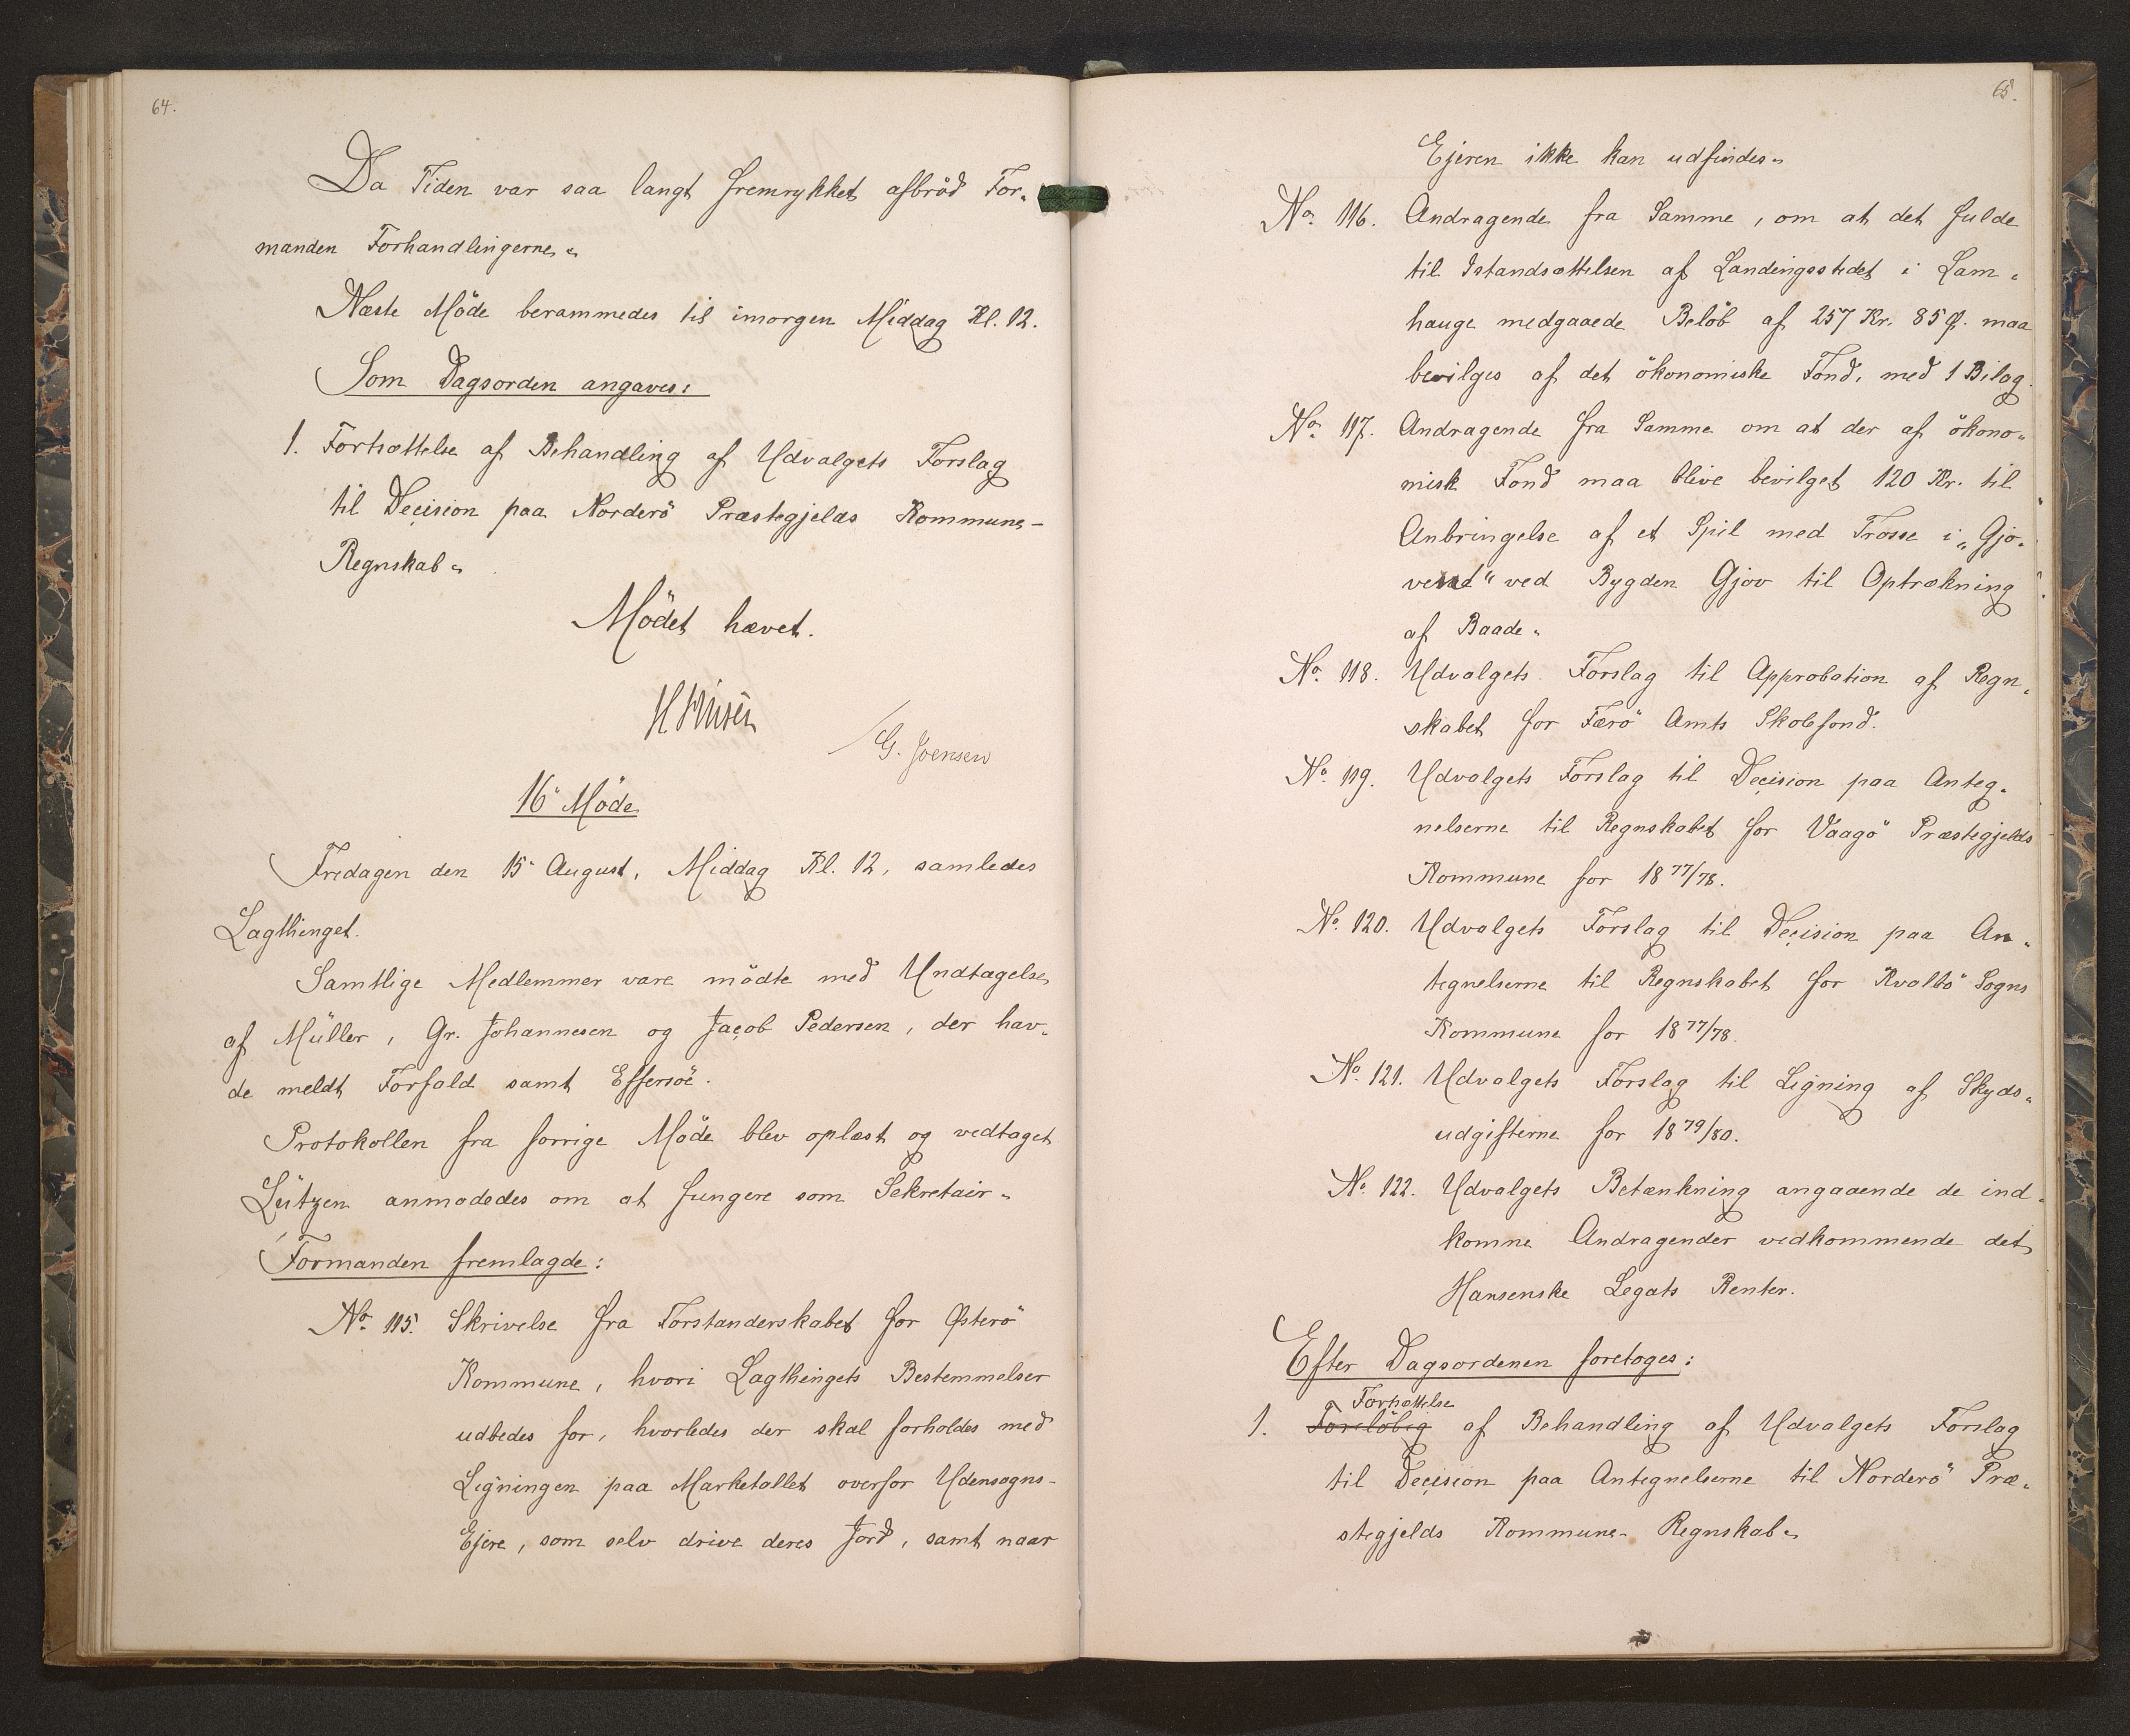 64.
Da Tiden var saa langt fremrykket afbröd For-
manden Forhandlingerne.
Næste Möde berammedes til imorgen Middag Kl. 12.
Som Dagsorden angaves:
1. Fortsættelse af Behandling af Udvalgets Forslag
til Decision paa Norderö Præstegjelds Kommune-
Regnskab.
Mödet hævet.
G. Joensen
16' Möde
Fredagen den 15' August, Middag Kl. 12, samledes
Lagthinget.
Samtlige Medlemmer vare mödte med Undtagelse
af Müller, Gr. Johannesen og Jacob Pedersen, der hav-
de meldt Forfald samt Effersöe.
Protokollen fra forrige Möde blev oplæst og vedtaget
Lützen anmodedes om at fungere som Sekretair.
Formanden fremlagde:
No. 115. Skrivelse fra Forstanderskabet for Østerö
Kommune, hvori Lagthingets Bestemmelser
udbedes for, hvorledes der skal forholdes med
Ligningen paa Marketallet overfor Udensogns-
Ejere, som selv drive deres Jord, samt naar
65.
Ejeren ikke kan udfindes.
No. 116. Andragende fra Samme, om at det fulde
til Istandsættelsen af Landingsstedet i Lam-
hauge medgaaede Belöb af 257 Kr. 85 Ø. maa
bevilges af det ökonomiske Fond, med 1 Bilag.
No. 117. Andragende fra Samme om at der af ökono-
misk Fond maa blive bevilget 120 Kr. til
Anbringelse af et Spil med Trosse i "Gjo-
" ved Bygden Gjov til Optrækning
af Baade.
No. 118. Udvalgets Forslag til Approbation af Regn-
skabet for Færö Amts Skolefond.
No. 119. Udvalgets Forslag til Decision paa Anteg-
nelserne til Regnskabet for Vaagö Præstegjelds
Kommune for 1877/78.
No. 120. Udvalgets Forslag til Decision paa An-
tegnelserne til Regnskabet for Kvalbö Sogns
Kommune for 1877/78.
No. 121. Udvalgets Forslag til Ligning af Skyds-
udgifterne for 1879/80.
No. 122. Udvalgets Betænkning angaaende de ind-
komne Andragender vedkommende det
Hansenske Legats Renter.
Efter Dagsordenen foretoges:
Fortsættelse
1. Foreløbig af Behandling af Udvalgets Forslag
til Decision paa Antegnelserne til Norderö Præ-
stegjelds Kommune-Regnskab.